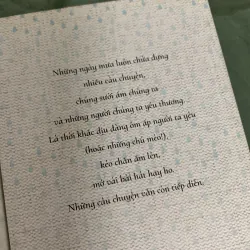 Những ngày mưa luôn chứa đựng
nhiều câu chuyện,
chúng sưởi ấm chúng ta
và những người chúng ta yêu thương.
Là thời khắc dịu dàng ôm ấp người ta yêu
(hoặc những chú mèo!),
kéo chăn ấm lên,
mở vài bài hát hay ho.
Những câu chuyện vẫn còn tiếp diễn,